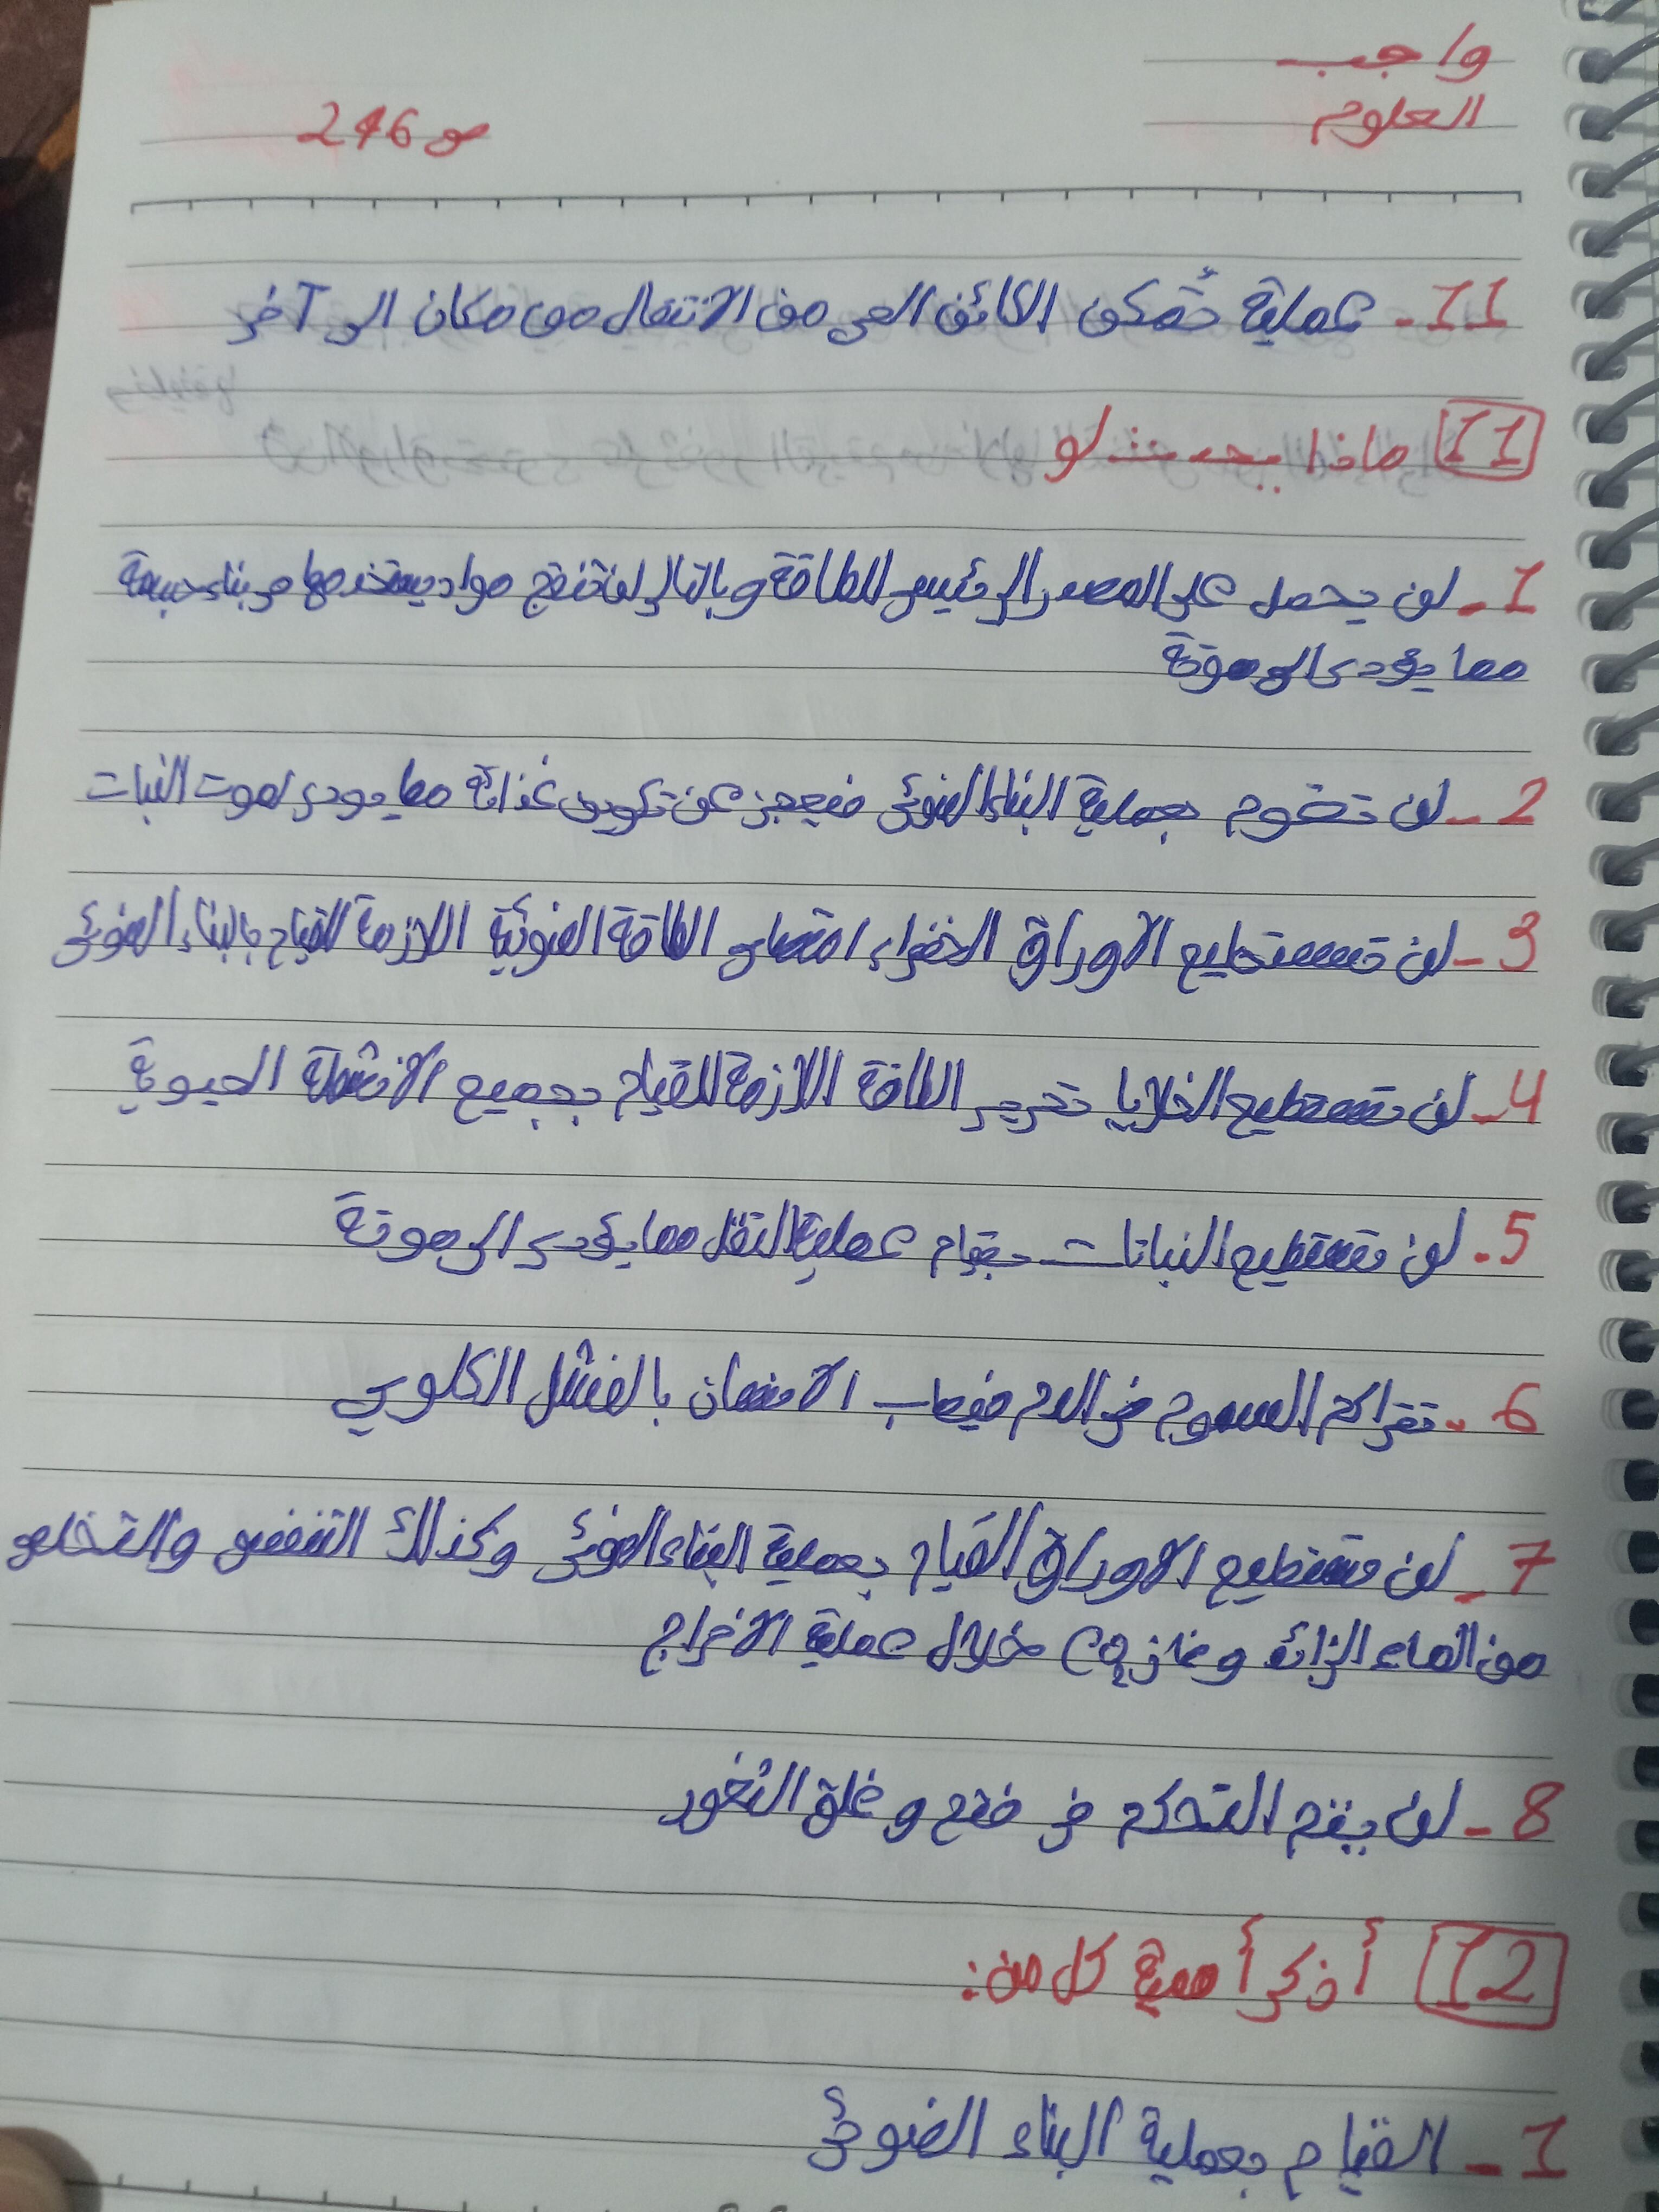 واجب
العلوم
ص 246
11- عملية تُمكن الكائن الحي من الانتقال من مكان الى آخر
11 ماذا يحدث لو
1- لن يحصل على المصدر الرئيسي للطاقة وبالتالي لن تنتج مواد يستخدمها في بناء جسمة
مما يؤدى الى موتة
2- لن تقوم بعملية البناء الضوئى فيعجز عن تكوين غذائة مما يودى لموت النبات
3- لن تستطيع الاوراق الخضراء امتصاص الطاقة الضوئية اللازمة للقيام بالبناء الضوئى
4- لن تستطيع الخلايا تحرير الطاقة اللازمة للقيام بجميع الانشطة الحيوية
5- لن تستطيع النباتات بقيام عملية النقل مما يؤدى الى موتة
6- تتراكم السموم في الدم فيصاب الانسان بالفشل الكلوي
7- لن تستطيع الاوراق القيام بعملية البناء الضوئى وكذلك التنفس والتخلص
من الماء الزائد وغاز CO2 خلال عملية الاخراج
8- لن يتم التحكم في فتح وغلق الثغور
12 أذكر أهمية كل من:
1- القيام بعملية البناء الضوئى